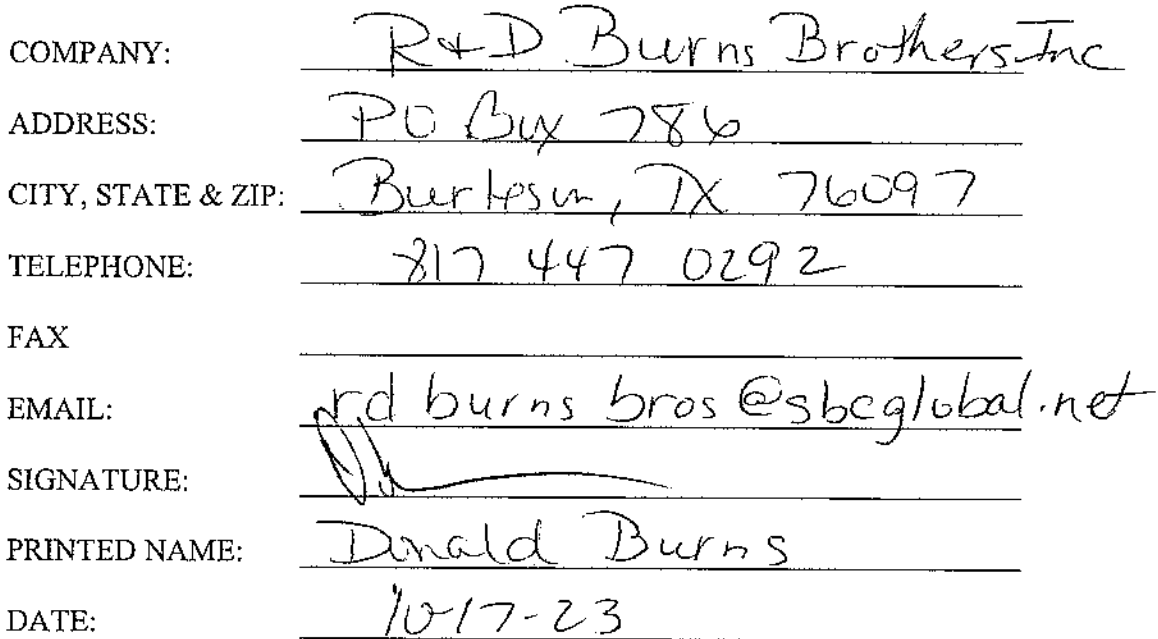 COMPANY: R+D Burns Brothers Inc
ADDRESS: PO Box 786
CITY, STATE & ZIP: Burleson, TX 76097
TELEPHONE: 817 447 0292
FAX
EMAIL: rd burns bros@sbcglobal.net
SIGNATURE:
PRINTED NAME: Donald Burns
DATE: 10-17-23